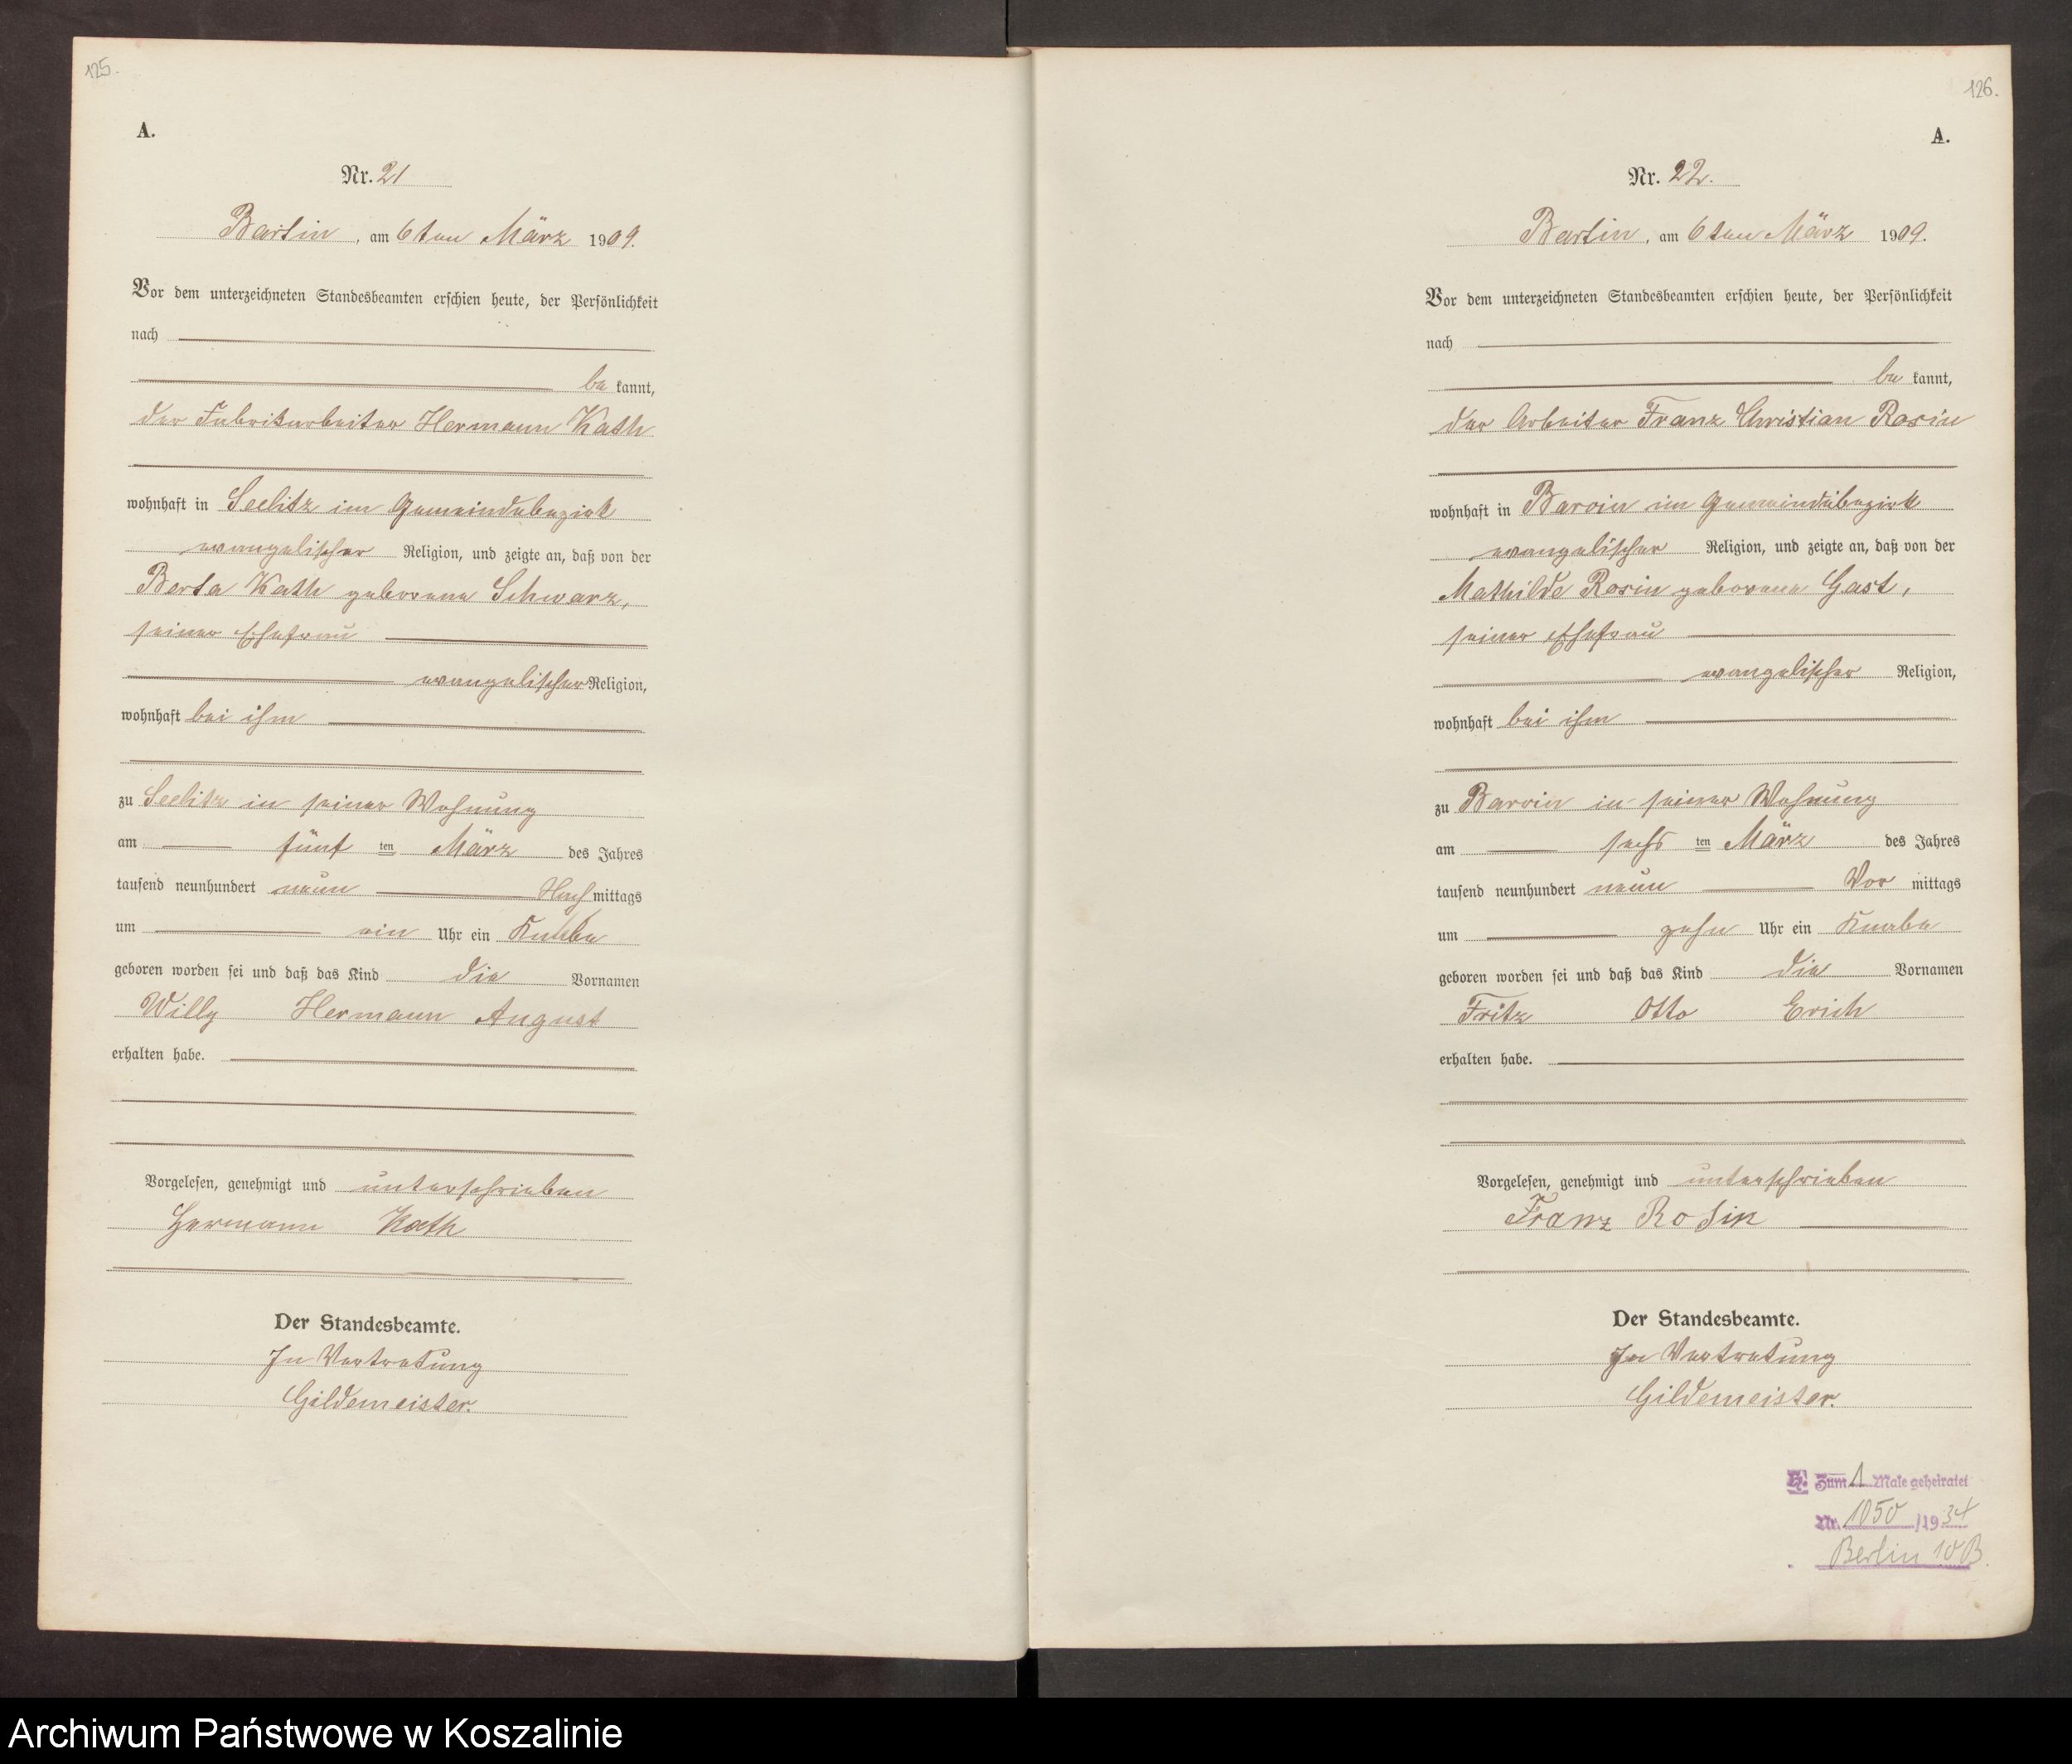 125.
A.
Nr. 21
Bartin, am 6ten März 1909.
Vor dem unterzeichneten Standesbeamten erschien heute, der Persönlichkeit
nach
be kannt,
der Fabrikarbeiter Hermann Kath
wohnhaft in Seelitz im Gemeindebezirk
evangelischer Religion, und zeigte an, daß von der
Berta Kath geborene Schwarz,
seiner Ehefrau
evangelischer Religion,
wohnhaft bei ihm
zu Seelitz in seiner Wohnung
am fünf ten März des Jahres
tausend neunhundert neun Nach mittags
um ein Uhr ein Knabe
geboren worden sei und daß das Kind die Vornamen
Willy Hermann August
erhalten habe.
Vorgelesen, genehmigt und unterschrieben
Hermann Kath
Der Standesbeamte.
In Vertretung
Gildemeister.
126.
A.
Nr. 22.
Bartin, am 6ten März 1909.
Vor dem unterzeichneten Standesbeamten erschien heute, der Persönlichkeit
nach
be kannt,
der Arbeiter Franz Christian Rosin
wohnhaft in Barvin im Gemeindebezirk
evangelischer Religion, und zeigte an, daß von der
Mathilde Rosin geborene Gast,
seiner Ehefrau
evangelischer Religion,
wohnhaft bei ihm
zu Barvin in seiner Wohnung
am sechs ten März des Jahres
tausend neunhundert neun Vor mittags
um zehn Uhr ein Knabe
geboren worden sei und daß das Kind die Vornamen
Fritz Otto Erich
erhalten habe.
Vorgelesen, genehmigt und unterschrieben
Franz Rosin
Der Standesbeamte.
In Vertretung
Gildemeister.
Zum 1 Male geheiratet
Nr. 1050 /1934
Berlin 10B.
Archiwum Państwowe w Koszalinie